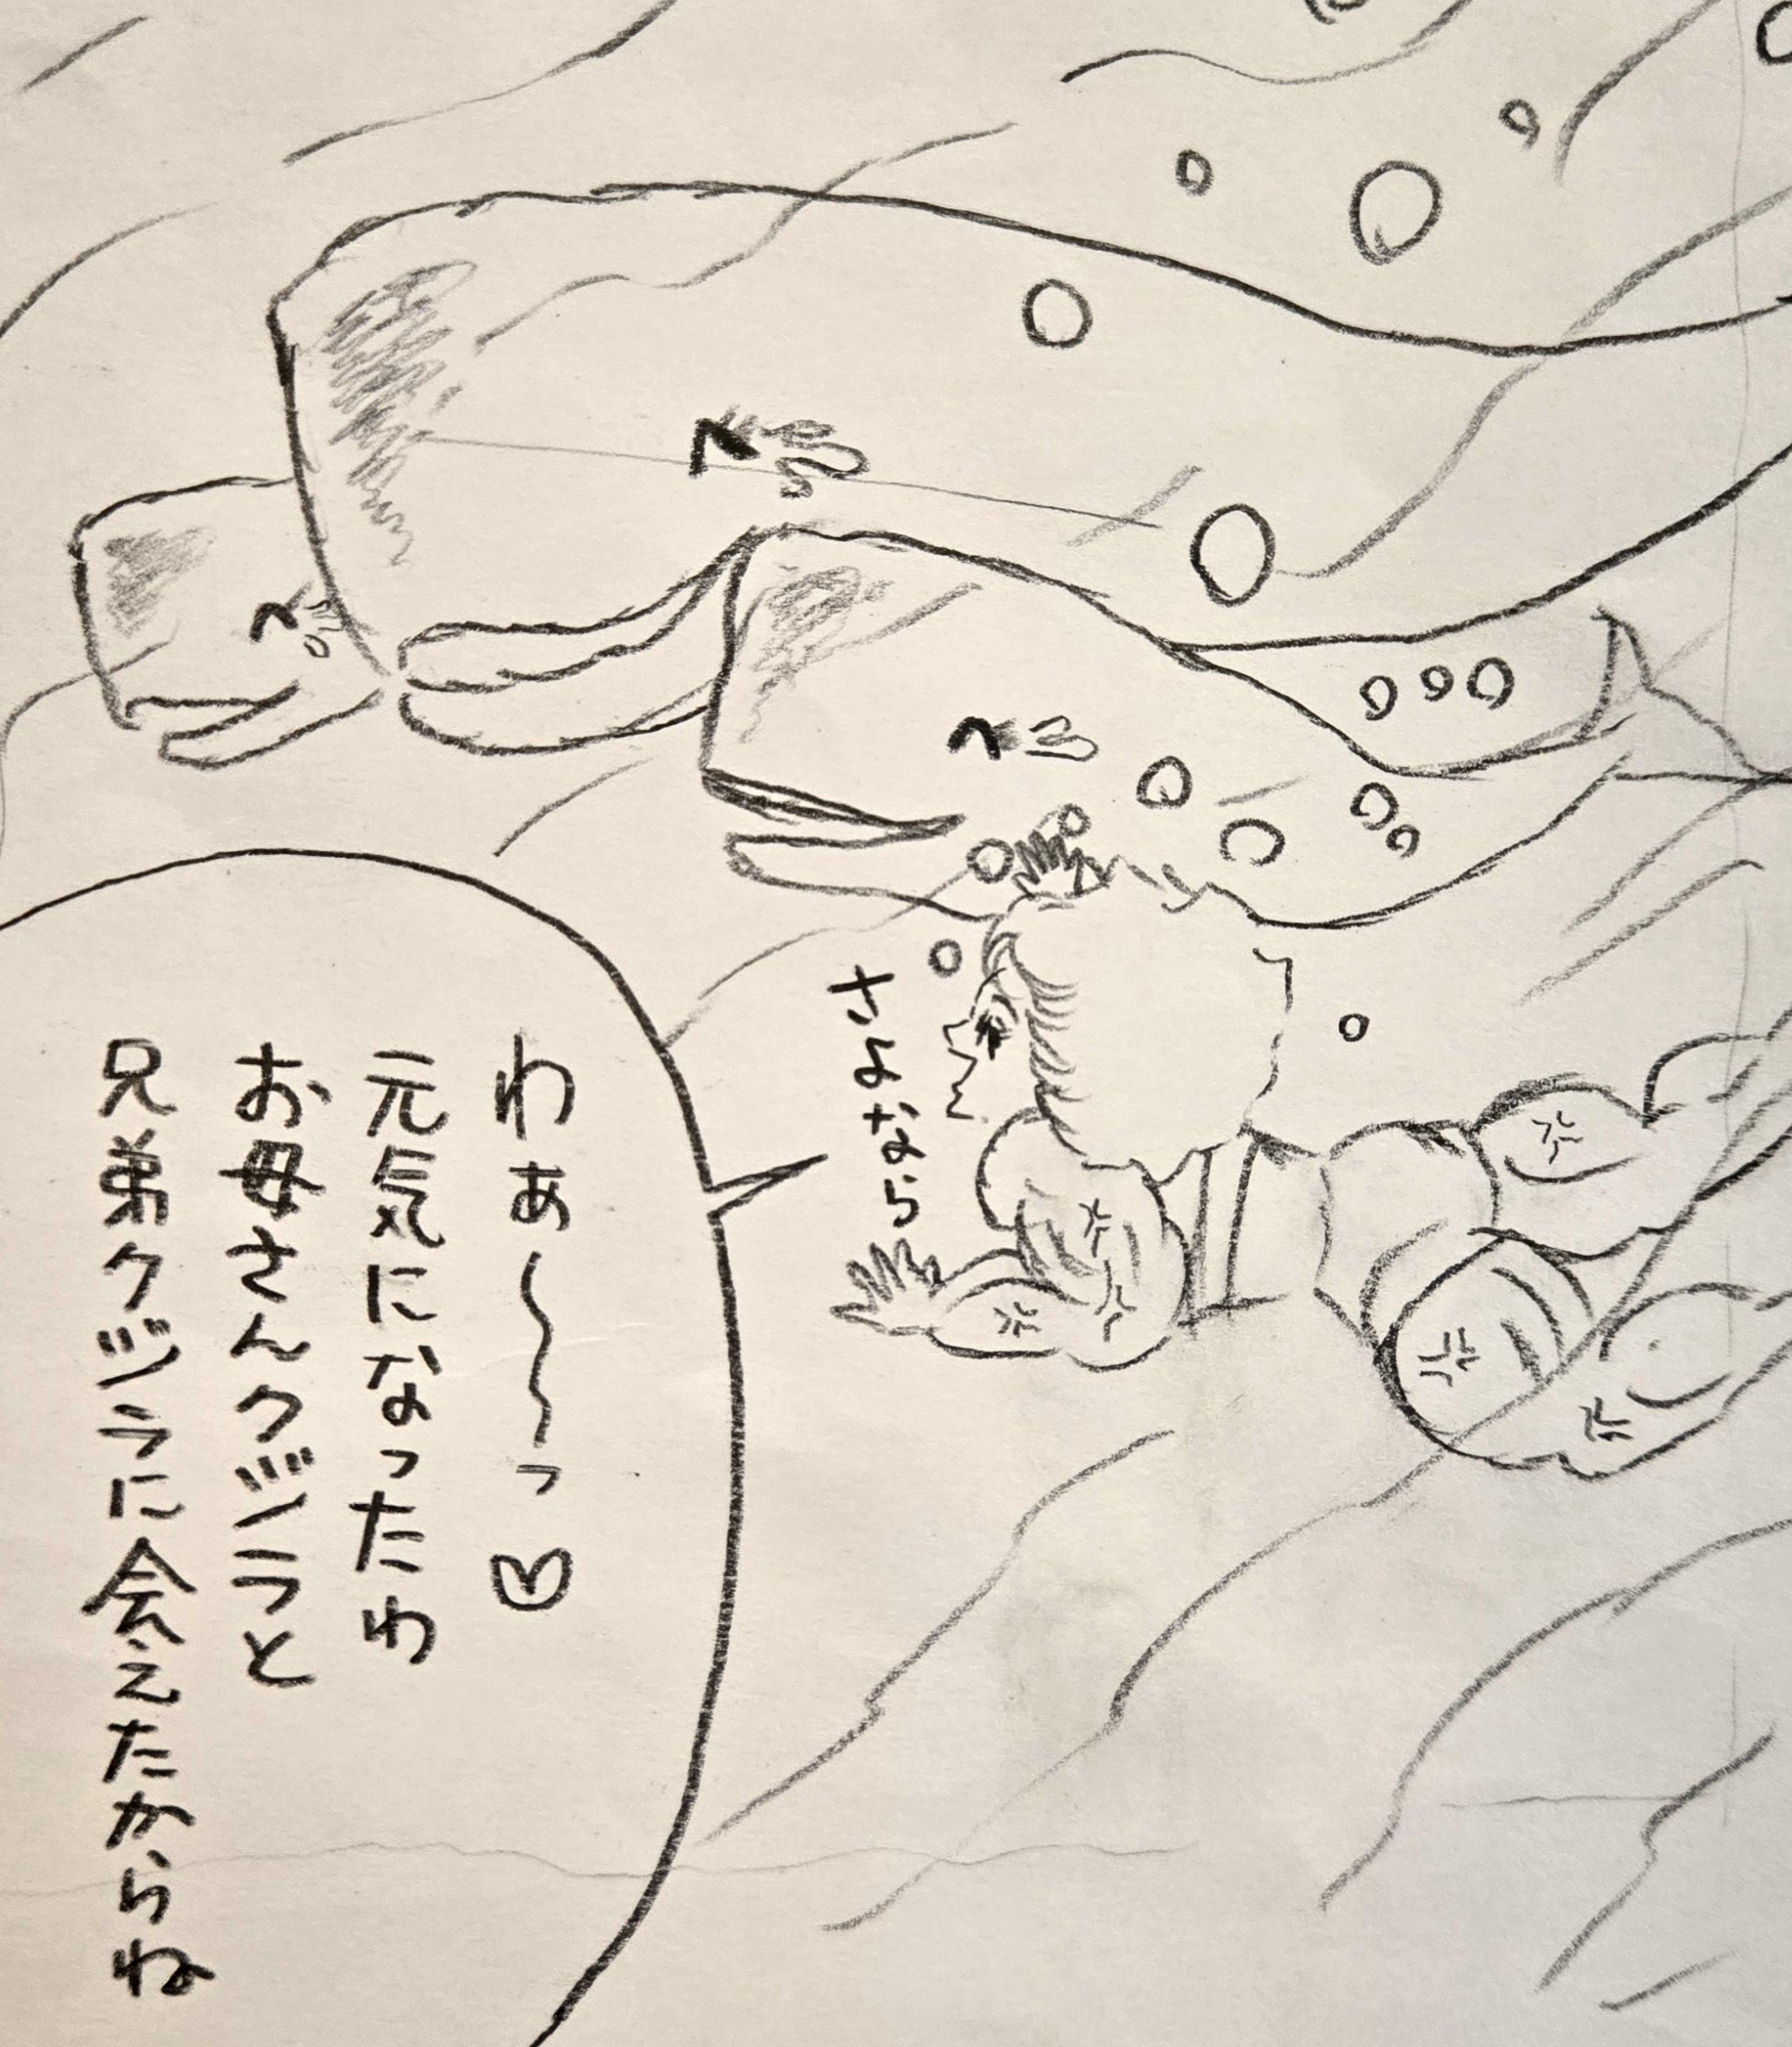 わぁ～～っ♡
元気になったわ
お母さんクジラと
兄弟クジラに会えたからね
さよなら